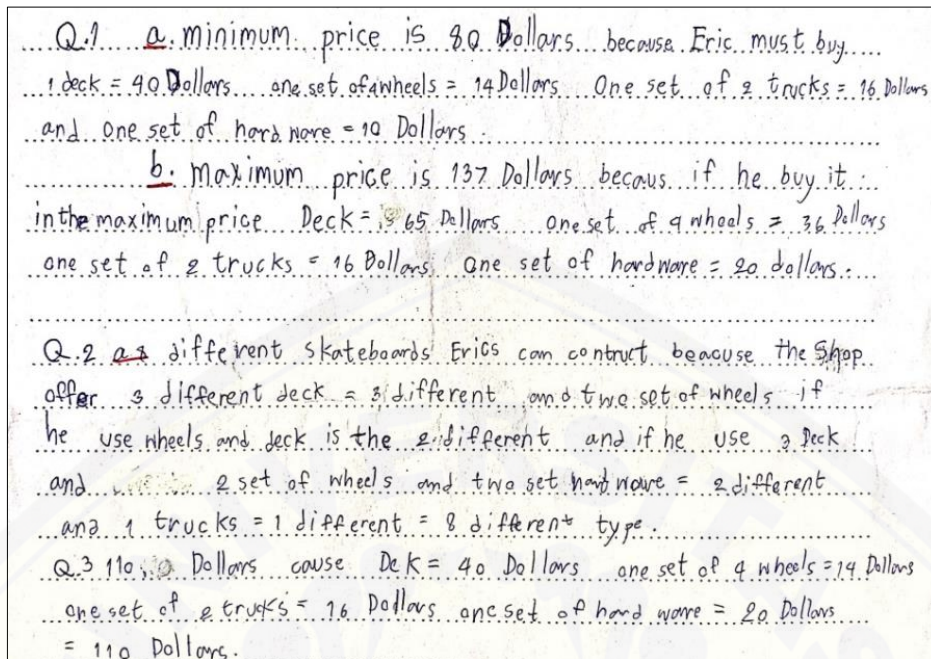 Q.1 a. minimum price is 80 Dollars because Eric must buy
1 deck = 40 Dollars one set of 4 wheels = 14 Dollars One set of 2 trucks = 16 Dollars
and one set of hard ware = 10 Dollars.
b. maximum price is 137 Dollars becaus if he buy it
in the maximum price Deck = 65 Dollars one set of 4 wheels = 36 Dollars
one set of 2 trucks = 16 Dollars one set of hardware = 20 dollars.
Q.2 different skateboards Erics can contruct beacuse the Shop
offer 3 different deck = 3 different and two set of wheels if
he use wheels and deck is the 2 different and if he use 3 Deck
and 2 set of wheels and two set hard ware = 2 different
and 1 trucks = 1 different = 8 different type.
Q.3 110 Dollars cause Dek = 40 Dollars one set of 4 wheels = 14 Dollars
one set of 2 trucks = 16 Dollars one set of hard ware = 20 Dollars
= 110 Dollars.